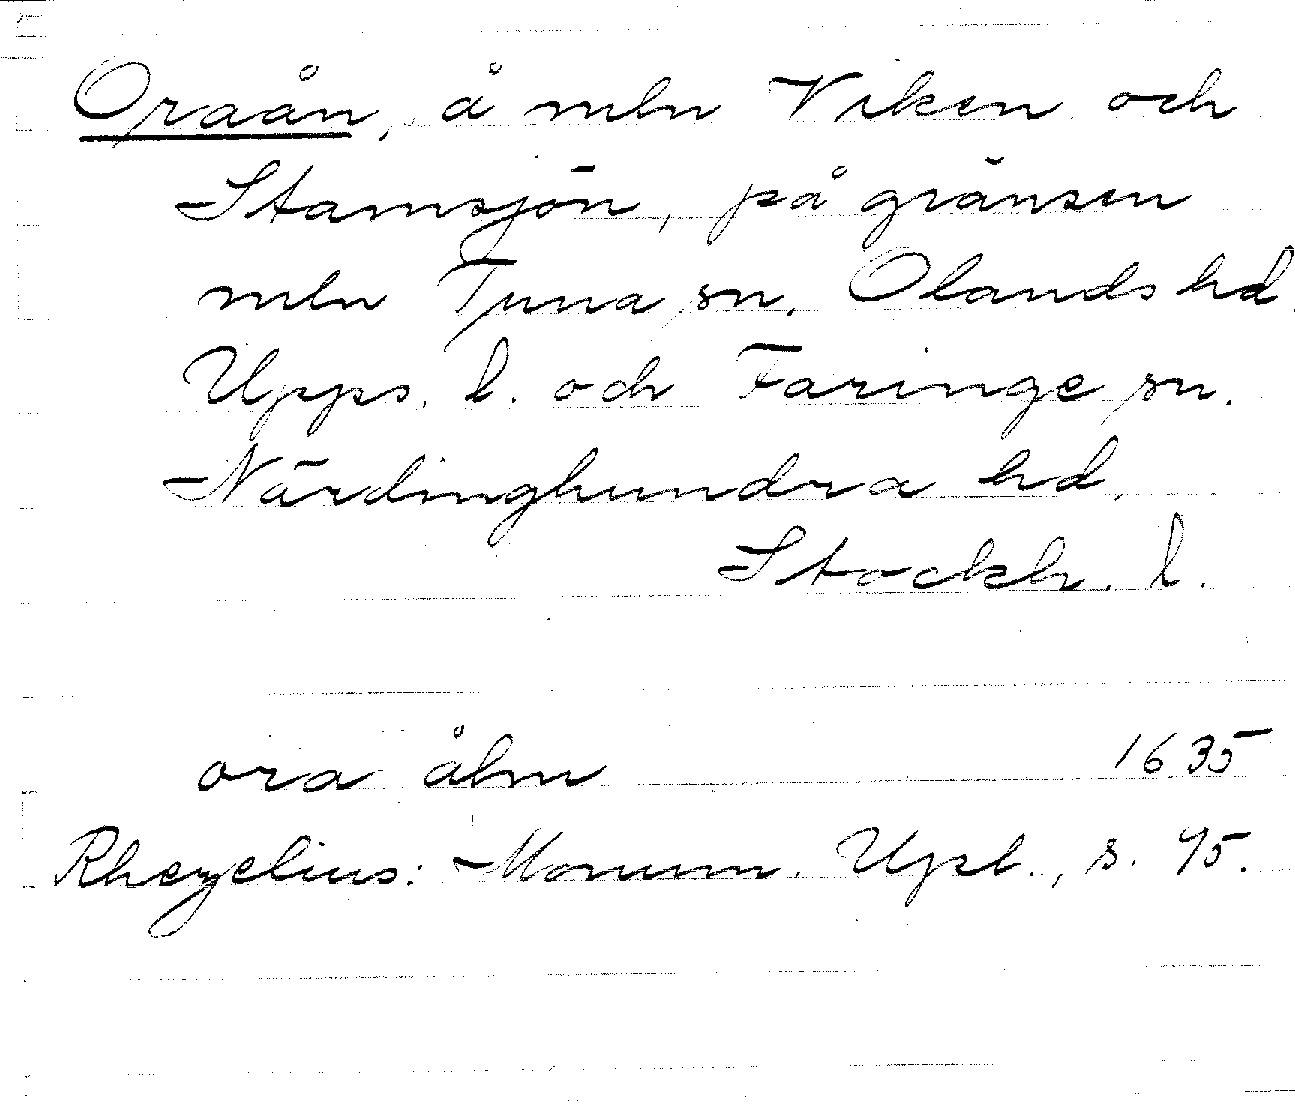 Oraån, å mln Viken och
Stamsjön, på gränsen
mln Tuna sn. Olands hd
Upps. l. och Faringe sn.
Närdinghundra hd.
Stockh. l.
ora ålm 1635
Rhezelius: Monum. Upl., s. 45.